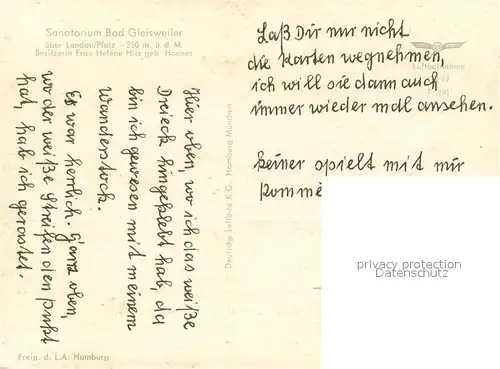 Sanatorium Bad Gleisweiler
über Landau/Pfalz - 350 m. ü. d. M.
Besitzerin Frau Helene Hitz geb. Hoones
Hier oben wo ich das weiße
Dreieck hingeklebt hab, da
bin ich gewesen mit meinem
Wanderstock.
Es war herrlich. Ganz oben,
wo der weiße Streifen den Punkt
hat, hab ich gerastet.
Freig. d. L.A. Hamburg
Deutsche Luftbild K.G. Hamburg-München
Luftaufnahme
Laß Dir nur nicht
die Karten wegnehmen,
ich will sie dann auch
immer wieder mal ansehen.
Keiner spielt mit mir
Romme
privacy protection
Datenschutz